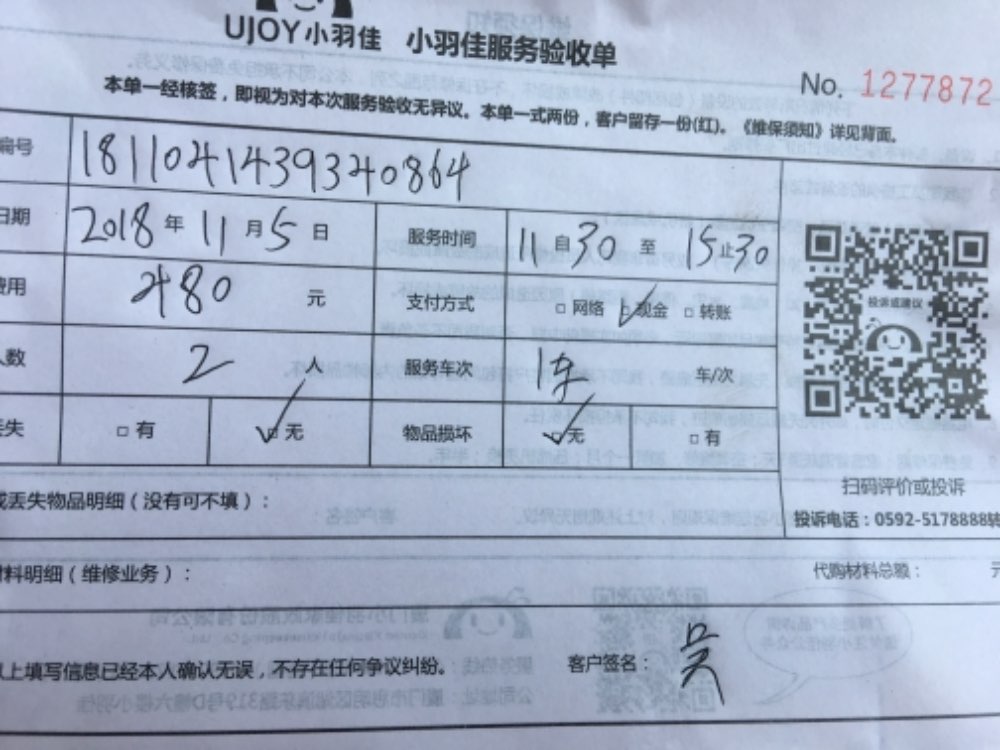 UJOY小羽佳 小羽佳服务验收单
No. 1277872
本单一经核签，即视为对本次服务验收无异议。本单一式两份，客户留存一份(红)。《维保须知》详见背面。
编号 18110414393240864
日期 2018年11月5日 服务时间 11自30至15止30
费用 480元 支付方式 □网络 □现金 □转账
人数 2人 服务车次 1车 车/次
丢失 □有 □无 物品损坏 □无 □有
投诉或建议
扫码评价或投诉
或丢失物品明细（没有可不填）：
投诉电话：0592-5178888转
材料明细（维修业务）： 代购材料总额： 元
以上填写信息已经本人确认无误，不存在任何争议纠纷。 客户签名： 吴